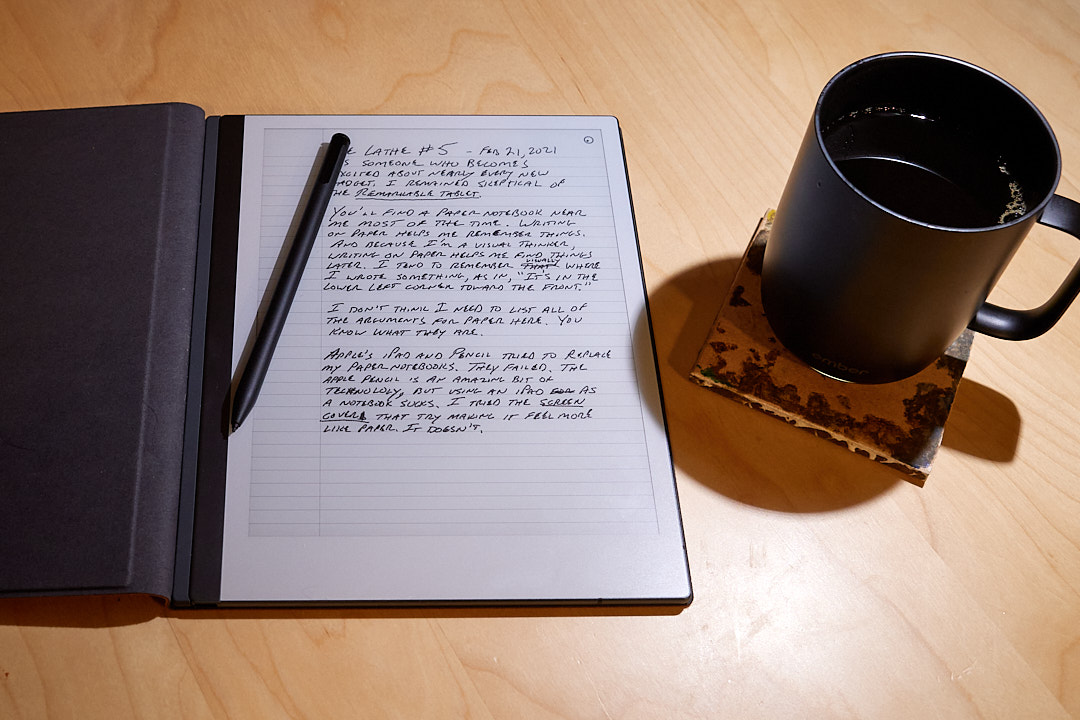 E LATHE #5 - FEB 21, 2021
S SOMEONE WHO BECOMES
XCITED ABOUT NEARLY EVERY NEW
ADGET, I REMAINED SKEPTICAL OF
HE REMARKABLE TABLET.
YOU'LL FIND A PAPER NOTEBOOK NEAR
ME MOST OF THE TIME. WRITING
ON PAPER HELPS ME REMEMBER THINGS.
AND BECAUSE I'M A VISUAL THINKER,
WRITING ON PAPER HELPS ME FIND THINGS
LATER. I TEND TO REMEMBER VISUALLY THAT WHERE
I WROTE SOMETHING, AS IN, "IT'S IN THE
LOWER LEFT CORNER TOWARD THE FRONT."
I DON'T THINK I NEED TO LIST ALL OF
THE ARGUMENTS FOR PAPER HERE. YOU
KNOW WHAT THEY ARE.
APPLE'S IPAD AND PENCIL TRIED TO REPLACE
MY PAPER NOTEBOOKS. THEY FAILED. THE
APPLE PENCIL IS AN AMAZING BIT OF
TECHNOLOLY, BUT USING AN IPAD AS
A NOTEBOOK SUCKS. I TRIED THE SCREEN
COVER THAT TRY MAKING IT FEEL MORE
LIKE PAPER. IT DOESN'T.
ember